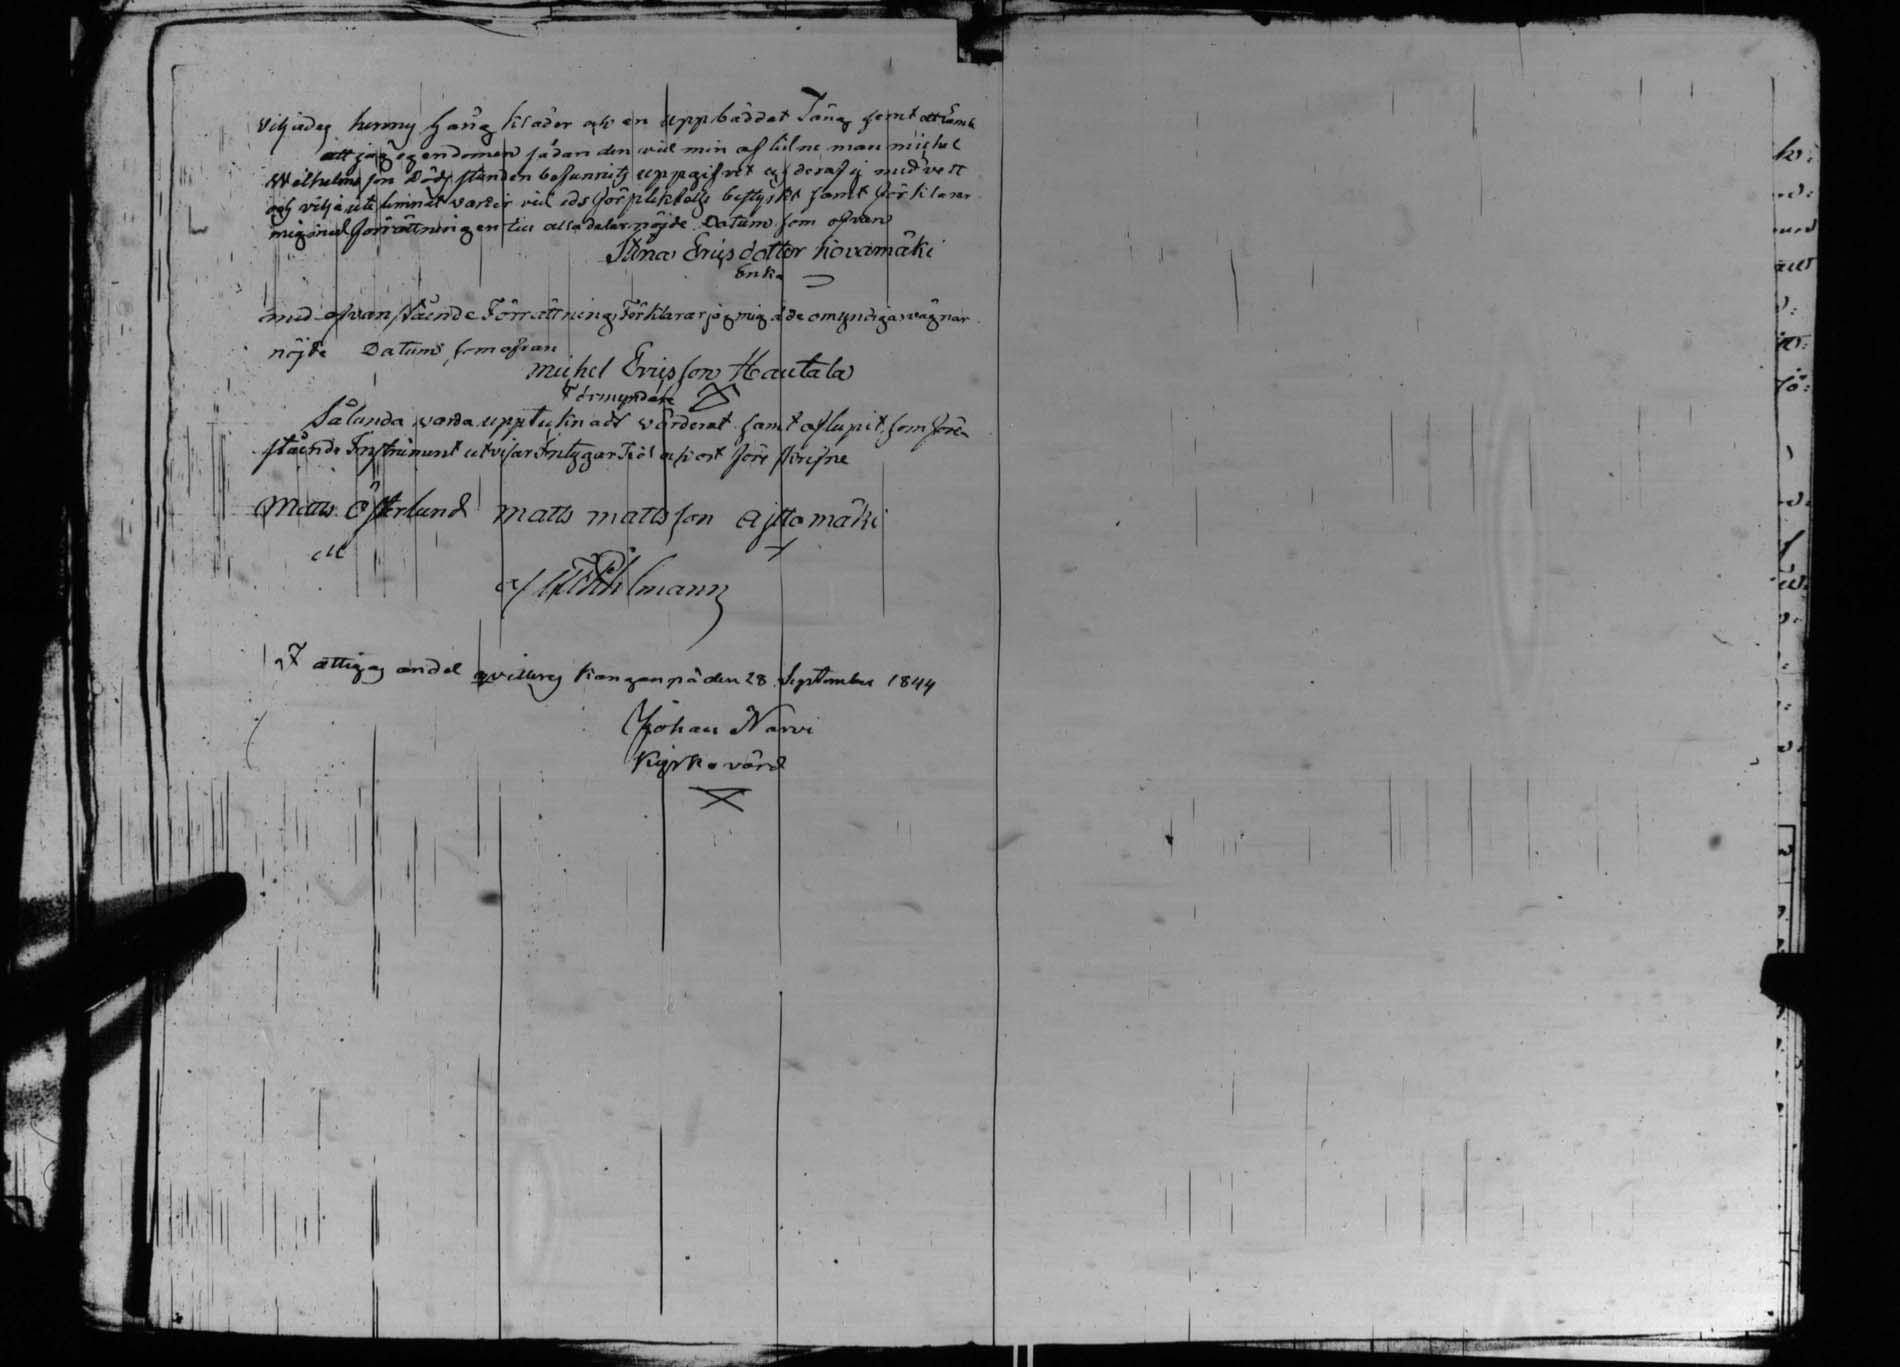 viljades henny gång kläder och en uppbäddat Säng samt
att jag egendomen sådan den vid min aflidne man michel
Wilhelms son Döds stunden befunnits uppgifvet och deraf ej med vett
och vilja ute limnat varder vid eds förpliktelse samt förklarar
mig med förrättningen till alla delar nöjde Datum som ofvan
Stina Ericsdotter kovamäki
Enka
med ofvan stående Förrättning Förklarar jag mig å de omyndigas vägnar
nöjde Datum som ofvan
michel Ericsson Hautala
Förmyndare
Sålunda varda upptecknadt värderat samt aflupit som före
stående Instrument utvisar Intygar Tid och ort före skrifne
Matts Österlund matts mattsson ajttomäki
Fattigas andel qvitteras Kanganpä den 28 September 1844
Johan Narvi
Kyrkovärd